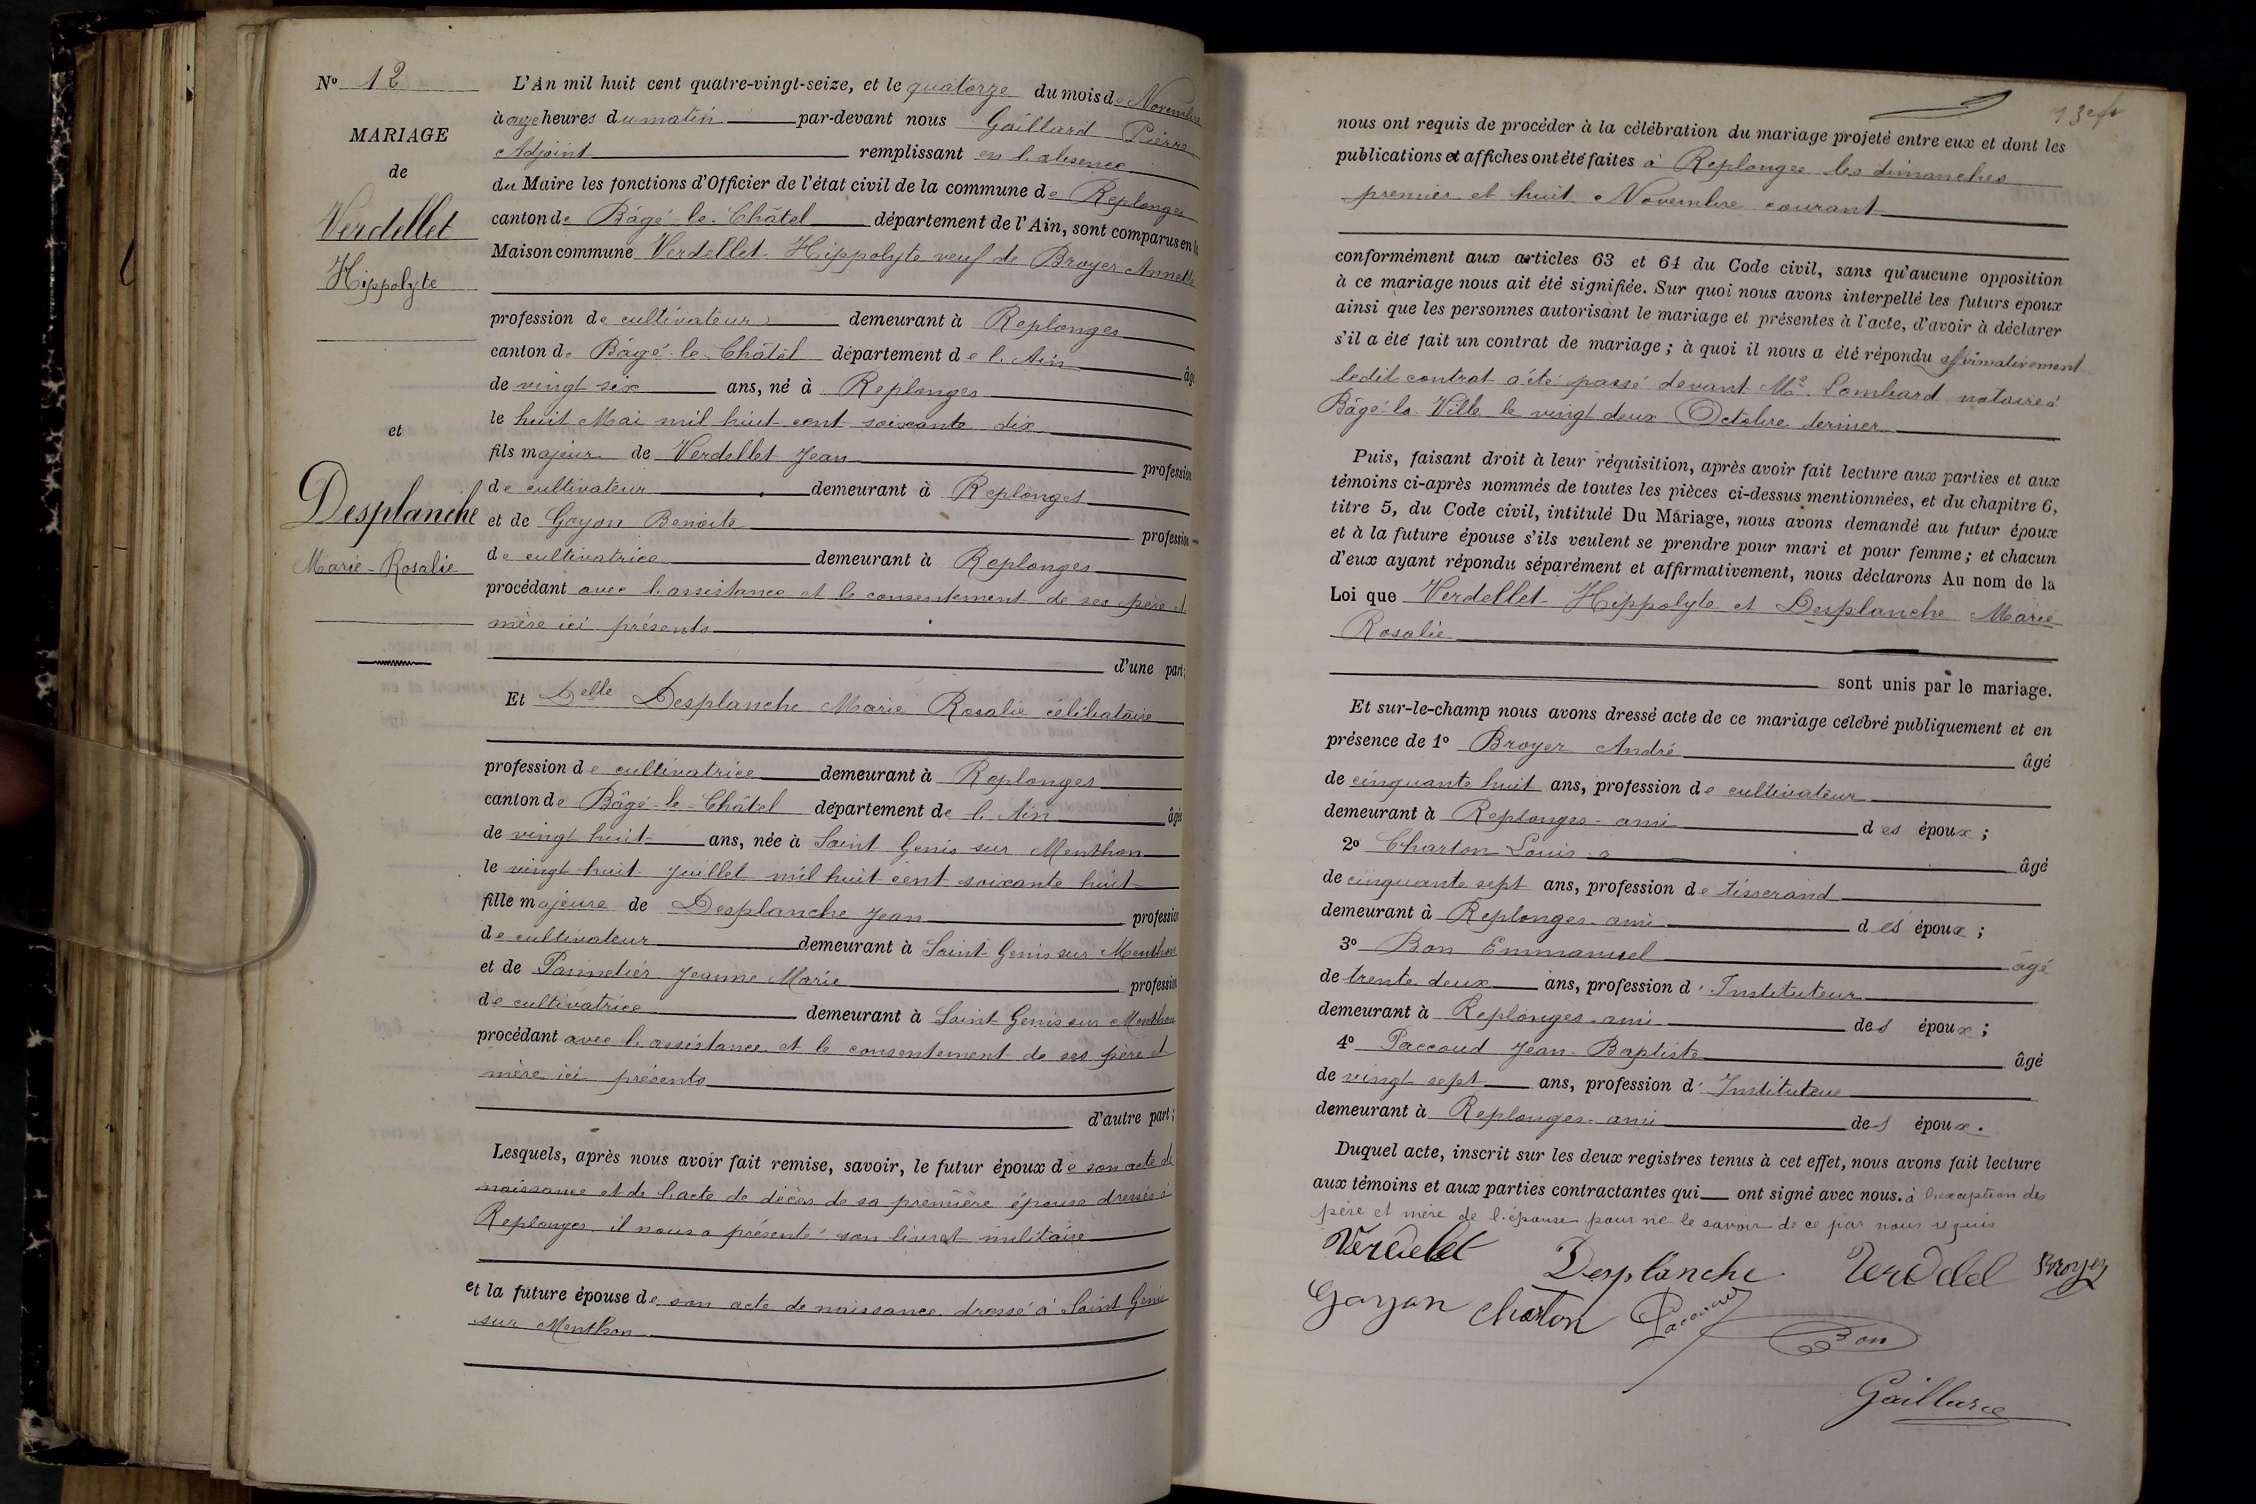 N° 12
MARIAGE
de
Verdellet
Hippolyte
et
Desplanche
Marie-Rosalie
L'An mil huit cent quatre-vingt-seize, et le quatorze du mois de Novembre
à onze heures du matin par-devant nous Gaillard Pierre
Adjoint remplissant en l'absence
du Maire les fonctions d'Officier de l'état civil de la commune de Replonges
canton de Bâgé-le-Châtel département de l'Ain, sont comparus en la
Maison commune Verdellet Hippolyte veuf de Broyer Annette
profession de cultivateur demeurant à Replonges
canton de Bâgé-le-Châtel département de l'Ain âgé
de vingt six ans, né à Replonges
le huit Mai mil huit cent soixante dix
fils majeur de Verdellet Jean profession
de cultivateur demeurant à Replonges
et de Goyon Benoite profession
de cultivatrice demeurant à Replonges
procédant avec l'assistance et le consentement de ses père et
mère ici présents
d'une part;
Et Delle Desplanche Marie Rosalie célibataire
profession de cultivatrice demeurant à Replonges
canton de Bâgé-le-Châtel département de l'Ain âgée
de vingt huit ans, née à Saint Genis sur Menthon
le vingt huit Juillet mil huit cent soixante huit
fille majeure de Desplanche Jean profession
de cultivateur demeurant à Saint-Genis sur Menthon
et de Pannetier Jeanne Marie profession
de cultivatrice demeurant à Saint Genis sur Menthon
procédant avec l'assistance et le consentement de ses père et
mère ici présents
d'autre part;
Lesquels, après nous avoir fait remise, savoir, le futur époux de son acte de
naissance et de l'acte de décès de sa première épouse dressés à
Replonges, il nous a présenté son livret militaire
et la future épouse de son acte de naissance dressé à Saint Genis
sur Menthon
nous ont requis de procéder à la célébration du mariage projeté entre eux et dont les
publications et affiches ont été faites à Replonges les dimanches
premier et huit Novembre courant
conformément aux articles 63 et 64 du Code civil, sans qu'aucune opposition
à ce mariage nous ait été signifiée. Sur quoi nous avons interpellé les futurs époux
ainsi que les personnes autorisant le mariage et présentes à l'acte, d'avoir à déclarer
s'il a été fait un contrat de mariage; à quoi il nous a été répondu affirmativement
ledit contrat a été passé devant Me Lombard notaire à
Bâgé-la-Ville le vingt deux Octobre dernier
Puis, faisant droit à leur réquisition, après avoir fait lecture aux parties et aux
témoins ci-après nommés de toutes les pièces ci-dessus mentionnées, et du chapitre 6,
titre 5, du Code civil, intitulé Du Mariage, nous avons demandé au futur époux
et à la future épouse s'ils veulent se prendre pour mari et pour femme; et chacun
d'eux ayant répondu séparément et affirmativement, nous déclarons Au nom de la
Loi que Verdellet Hippolyte et Desplanche Marie
Rosalie
sont unis par le mariage.
Et sur-le-champ nous avons dressé acte de ce mariage célébré publiquement et en
présence de 1° Broyer André âgé
de cinquante huit ans, profession de cultivateur
demeurant à Replonges ami des époux;
2° Charton Louis âgé
de cinquante sept ans, profession de tisserand
demeurant à Replonges ami des époux;
3° Bon Emmanuel âgé
de trente deux ans, profession d'Instituteur
demeurant à Replonges ami des époux;
4° Paccoud Jean-Baptiste âgé
de vingt sept ans, profession d'Instituteur
demeurant à Replonges ami des époux.
Duquel acte, inscrit sur les deux registres tenus à cet effet, nous avons fait lecture
aux témoins et aux parties contractantes qui ont signé avec nous. à l'exception des
père et mère de l'épouse pour ne le savoir de ce par nous requis
Verdelet Desplanche Verddel Broyer
Goyon Charton Paccoud Bon
Gaillard